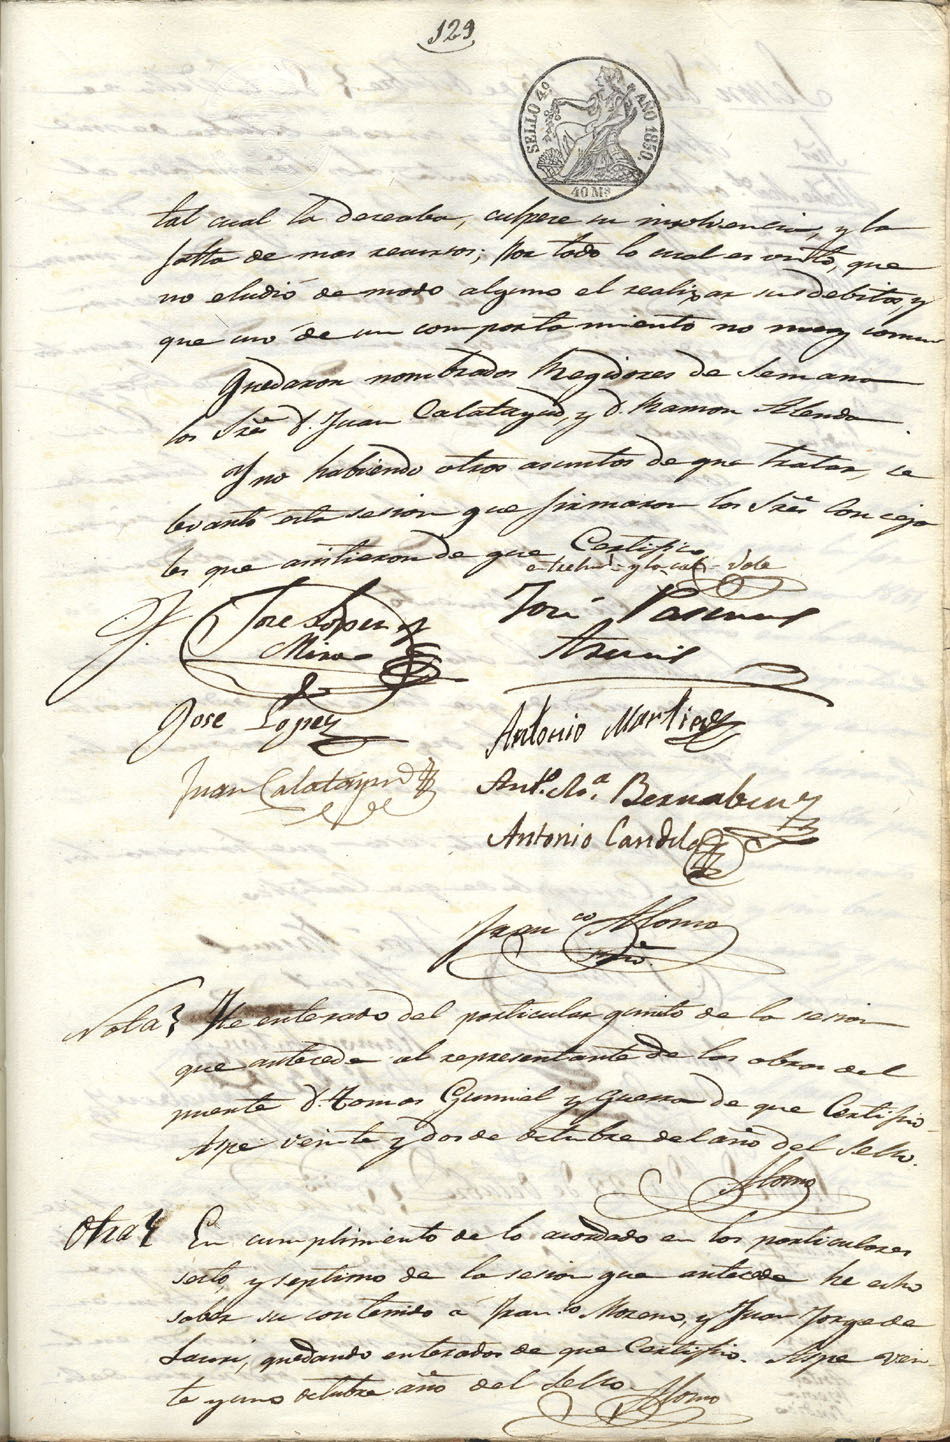 129
SELLO 4º AÑO 1850.
40 Ms
tal cual la deceaba, culpese su insolvencia, y la
falta de mas recursos; por todo lo cual es visto, que
no eludió de modo alguno el realizar sus debitos, y
que usó de un comportamiento no muy comun
Quedaron nombrados Regidores de Semana
los Sres. D. Juan Calatayud, y D. Ramon Alenda
Y no habiendo otros asuntos de que tratar, se
levantó esta sesion que firmaron los Sres. Conceja
les que asistieron de que Certifico
y la Vale
Jose Lopez y
Mira
José Pascual
Asencio
Jose Lopez
Antonio Martinez
Juan Calatayud
Anto. Ma. Bernabeu
Antonio Candela
Franco. Alonso
Srio.
Nota He enterado del particular quinto de la sesion
que antecede al representante de las obras del
puente D. Tomas Gumiel y Guerra de que Certifico
Aspe veinte y dos de octubre del año del Sello.
Alonso
Otra En cumplimiento de lo acordado en los particulares
sesto, y septimo de la sesion que antecede he echo
saber su contenido á Franco. Moreno, y Juan Jorge de
quedando enterados de que Certifico. Aspe vein
te y uno octubre año del Sello
Alonso